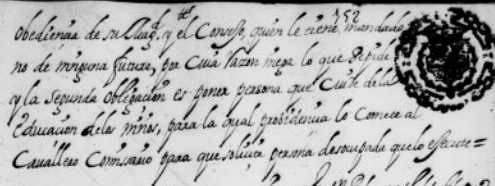 152
obediencia de su Mag.d y el Consejo, quien le tiene mandado
no dè ninguna futura, por Cuia Razon niega lo que se pide
y la segunda obligacion es poner persona que Cuide de la
educacion delos niños, para la qual probidencia lo Comete al
Cavallero Comissario para que solicite persona desocupada quelo efecute=